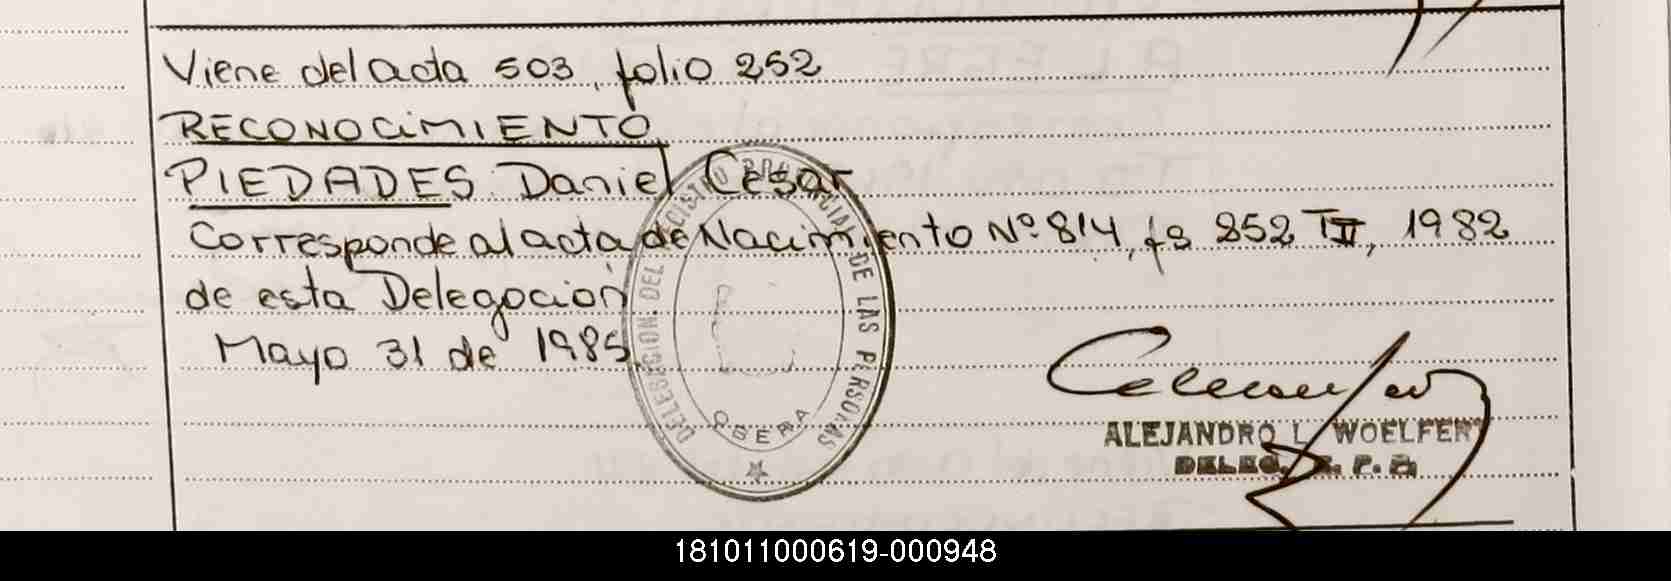 Viene del acta 503, folio 252
RECONOCIMIENTO
PIEDADES Daniel César
Corresponde al acta de Nacimiento Nº 814, fs 252 TII, 1982
de esta Delegación
Mayo 31 de 1985
DELEGACION DEL REGISTRO PROVINCIAL DE LAS PERSONAS
OBERA
ALEJANDRO L. WOELFERT
DELEG. R. P. P.
181011000619-000948